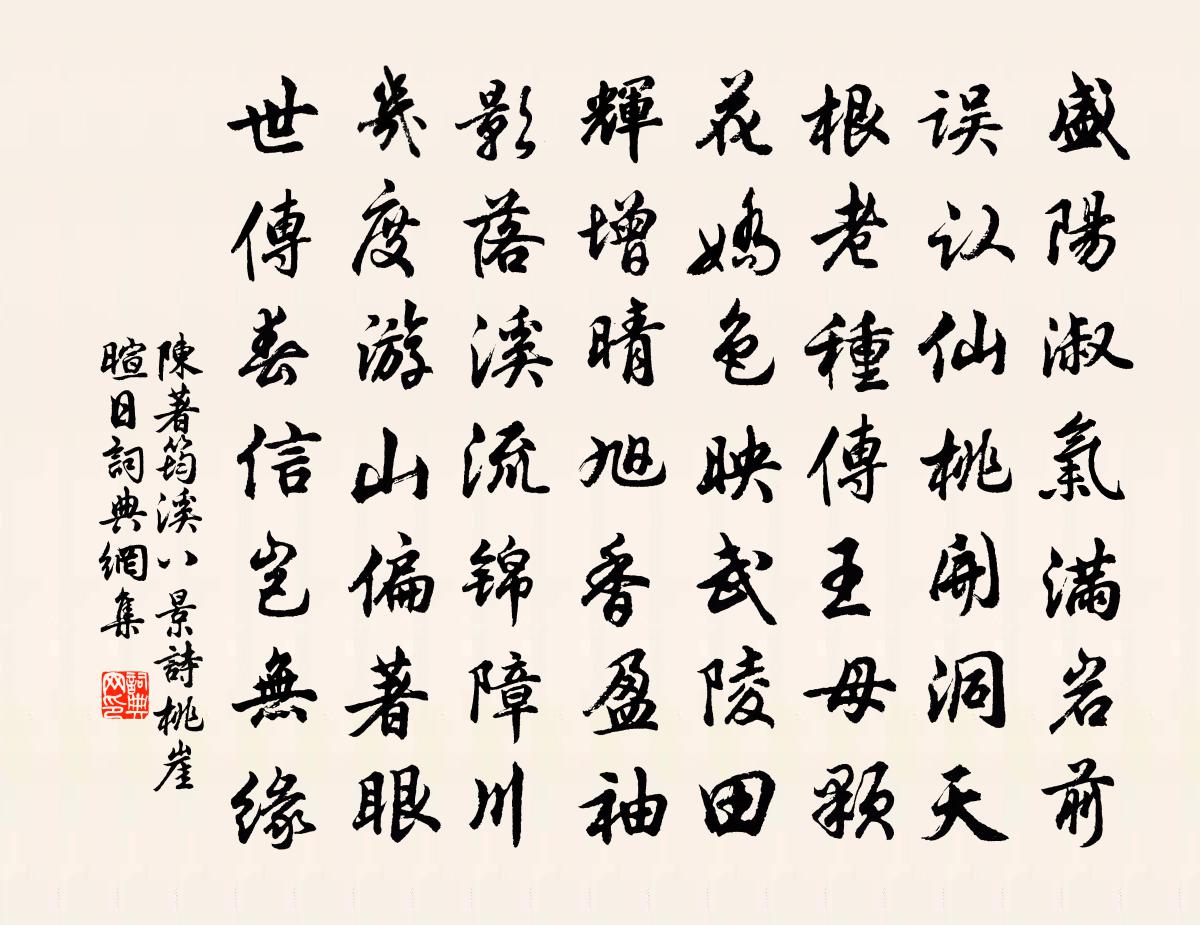 盛陽淑氣滿岩前
误认仙桃開洞天
根老種傳王母顆
花嬌色映武陵田
輝增晴旭香盈袖
影落溪流锦障川
幾度游山偏著眼
世傳春信豈無緣
陳著筠溪八景詩桃崖
暄日詞典網集
詞典网印